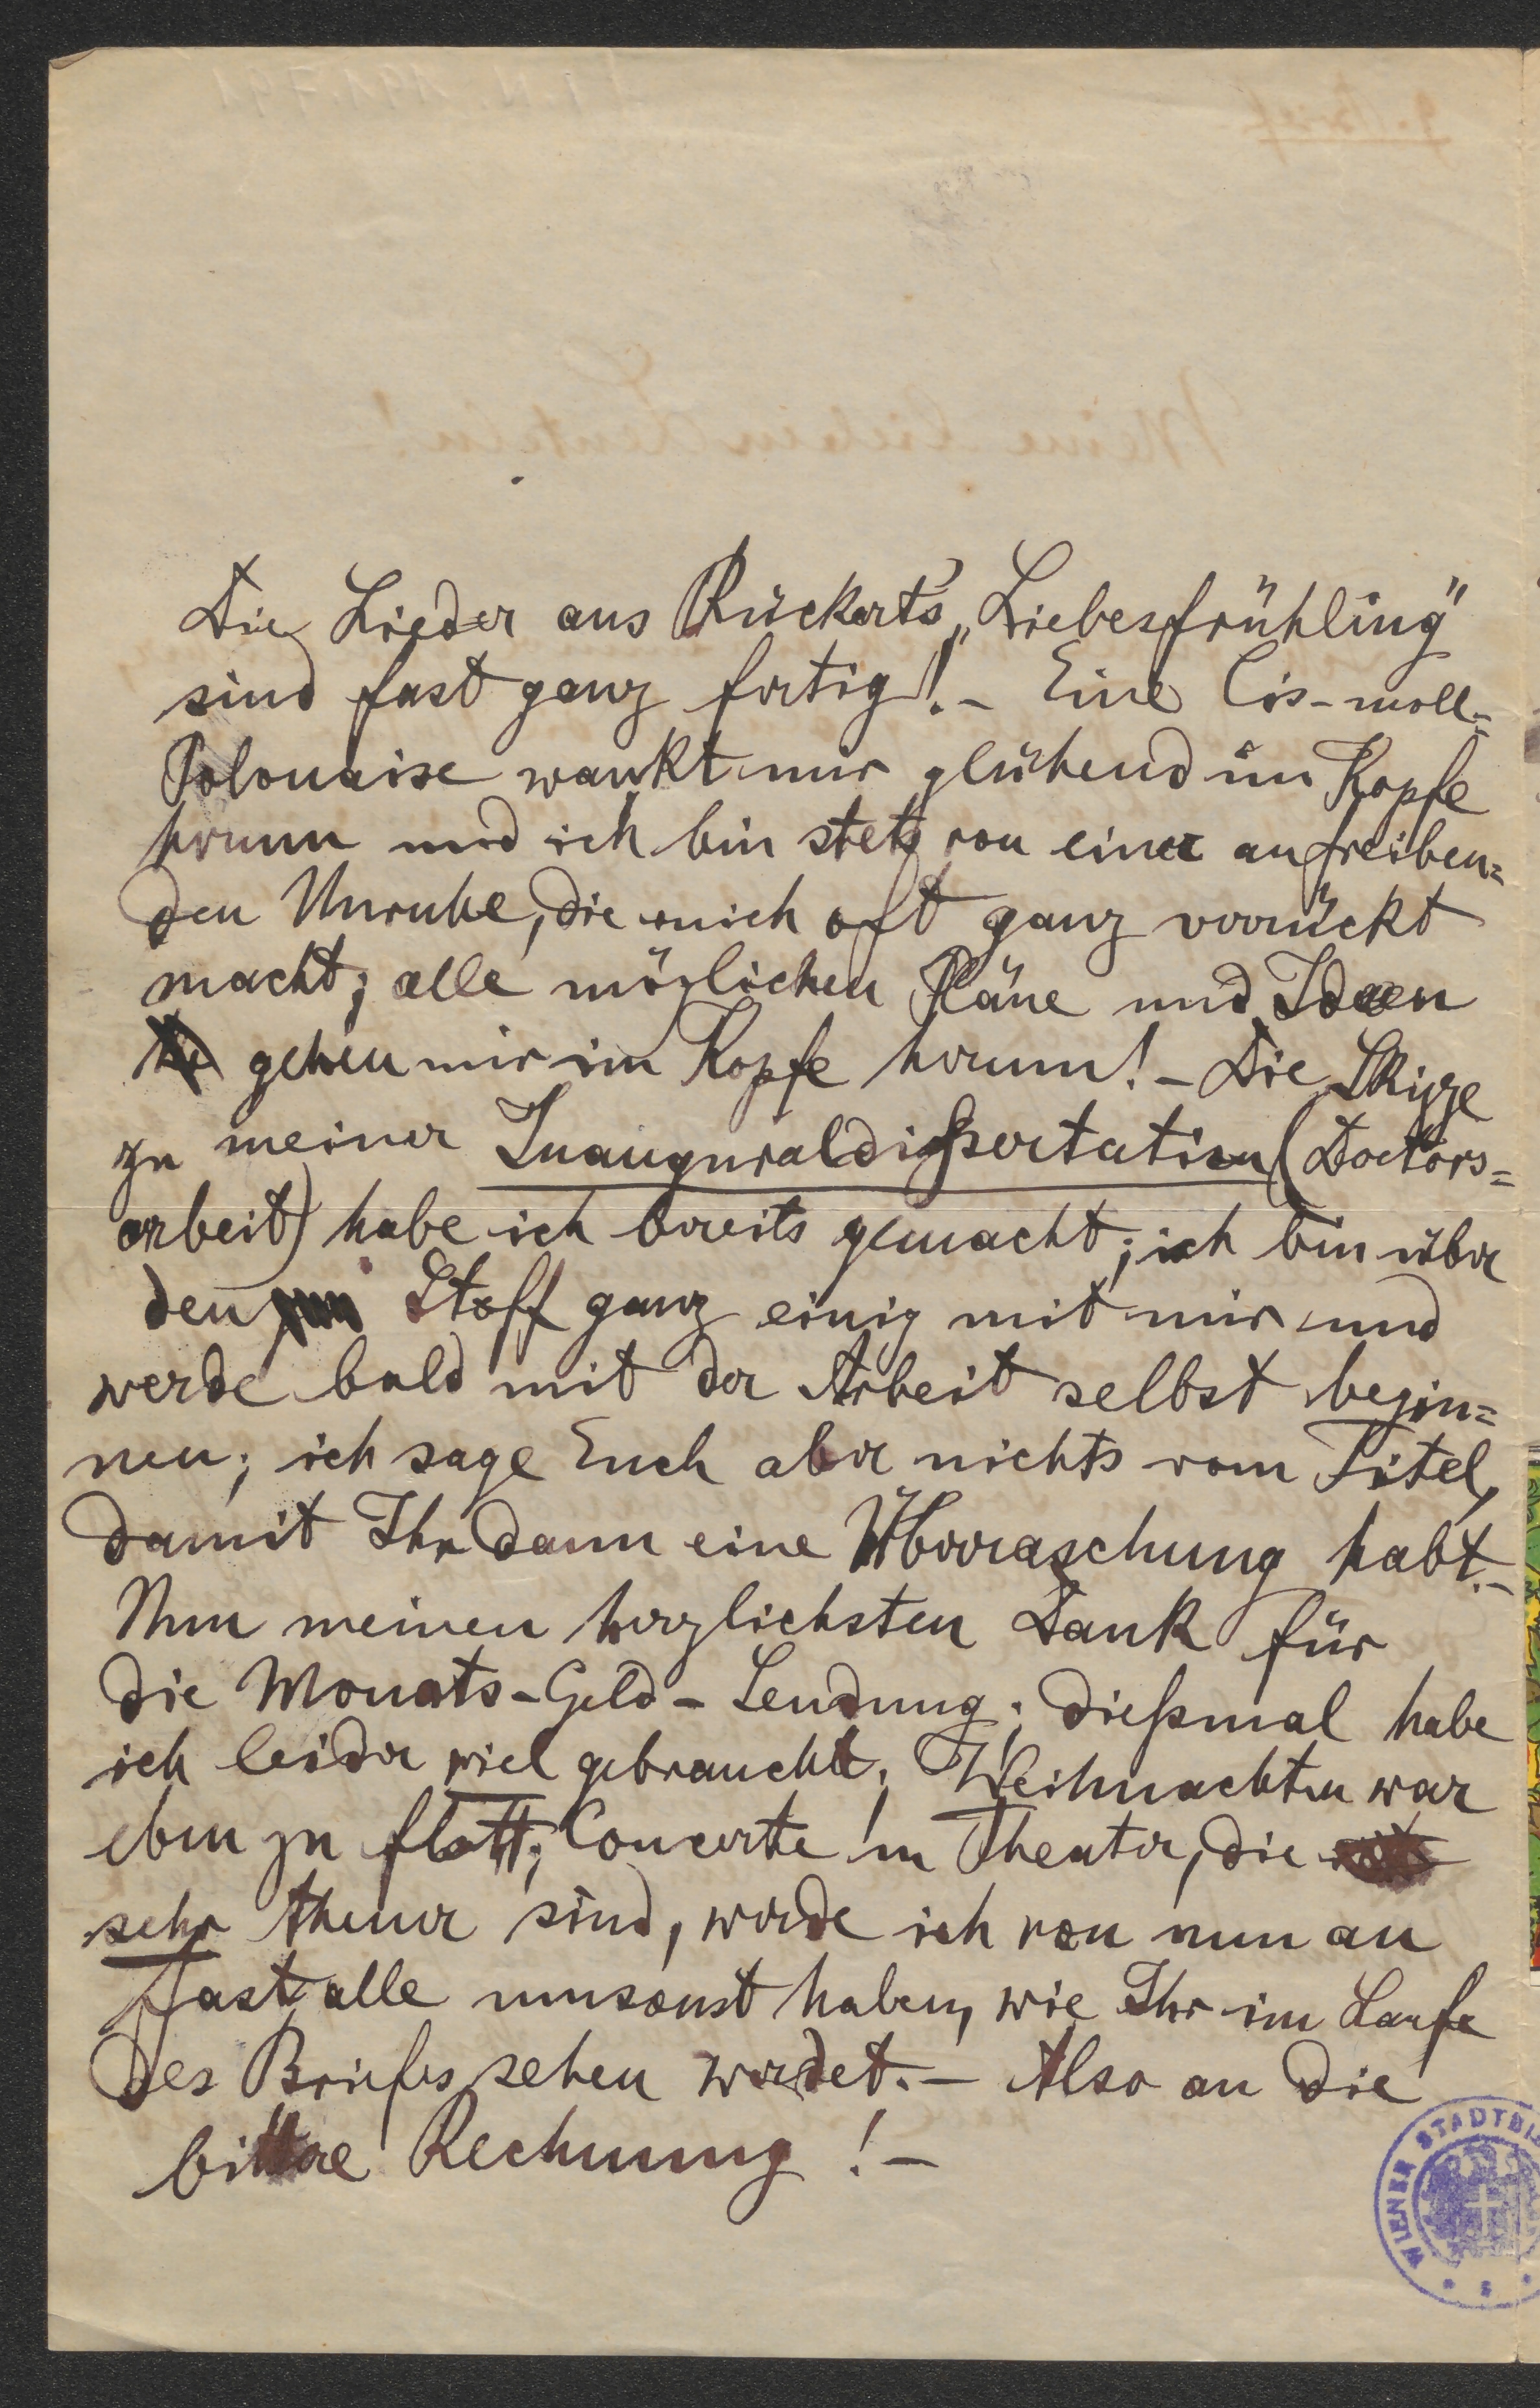 Die Lieder aus Rückert's „Liebesfrühling"
sind fast ganz fertig! - Eine Cis-moll=
Polonaise wankt mir glühend im Kopfe
herum und ich bin stets von einer aufreiben=
den Unruhe, die mich oft ganz verrückt
macht; alle möglichen Pläne und Ideen
gehen mir im Kopfe herum! - Die Skizze
zu meiner Inauguraldißertation (Doctors=
arbeit) habe ich bereits gemacht; ich bin über
den Stoff ganz einig mit mir und
werde bald mit der Arbeit selbst begin=
nen; ich sage Euch aber nichts vom Titel,
damit Ihr dann eine Überraschung habt. -
Nun meinen herzlichsten Dank für
die Monats-Geld-Sendung; dießmal habe
ich leider viel gebraucht; Weihnachten war
eben zu flott; Concerte u Theater, die
sehr theuer sind, werde ich von nun an
fast alle umsonst haben, wie Ihr im Laufe
des Briefes sehen werdet. - Also an die
bittere Rechnung! -
WIENER STADTBI